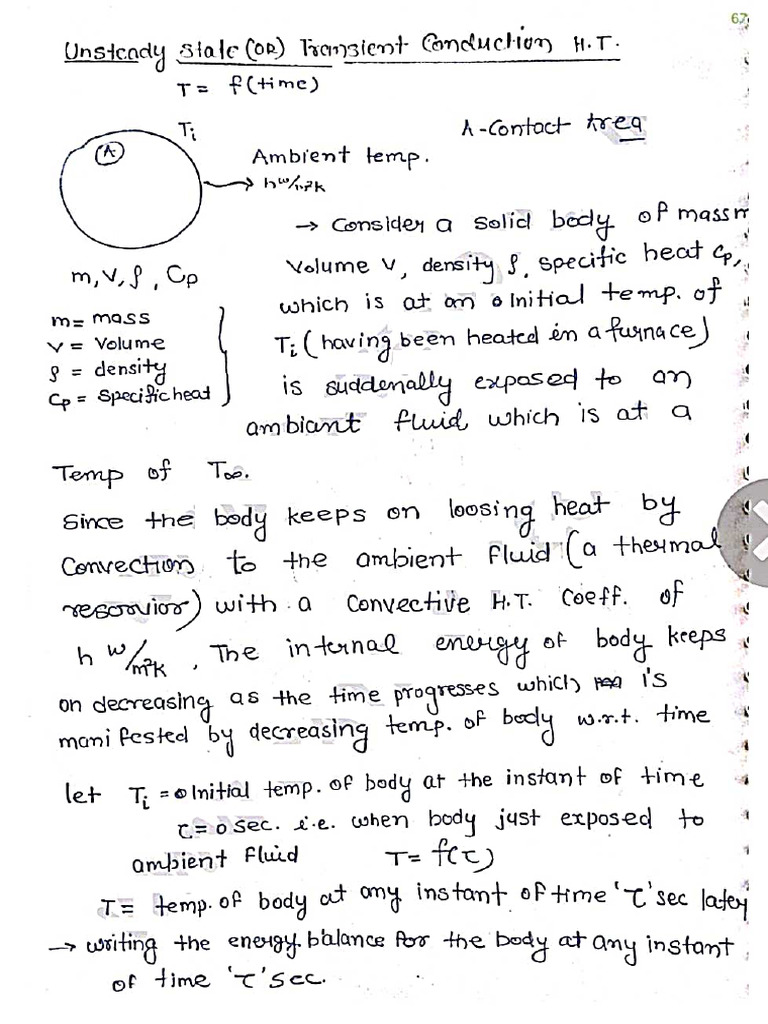 67
Unsteady State (OR) Transient Conduction H.T.
T = f(time)
Ti
A-Contact Area
A
Ambient temp.
h w/m²k
→ Consider a solid body of mass m
m, V, ρ, Cp
Volume V, density ρ, specific heat Cp,
which is at an Initial temp. of
m = mass
V = Volume
ρ = density
Cp = Specific heat
Ti (having been heated in a furnace)
is suddenally exposed to an
ambiant fluid which is at a
Temp of T∞.
Since the body keeps on loosing heat by
Convection to the ambient fluid (a thermal
reservior) with a Convective H.T. Coeff. of
h w/m²k, The internal energy of body keeps
on decreasing as the time progresses which is
manifested by decreasing temp. of body w.r.t. time
let Ti = Initial temp. of body at the instant of time
τ = 0 sec. i.e. when body just exposed to
ambient fluid T = f(τ)
T = temp. of body at any instant of time 'τ' sec later
→ writing the energy balance for the body at any instant
of time 'τ' sec.